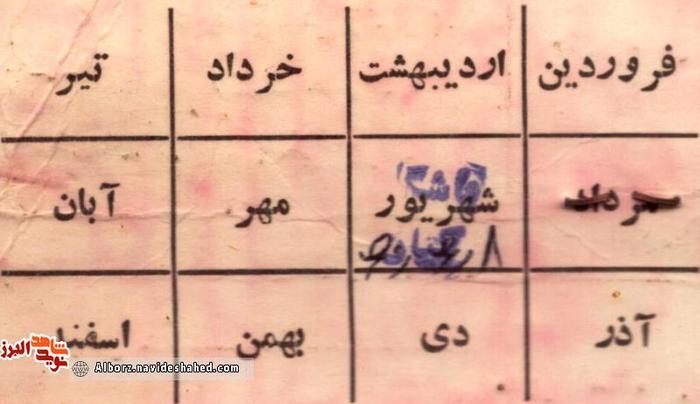 فروردین اردیبهشت خرداد تیر
مرداد شهریور مهر آبان
آذر دی بهمن اسفند
نوید شاهد البرز
Alborz.navideshahed.com